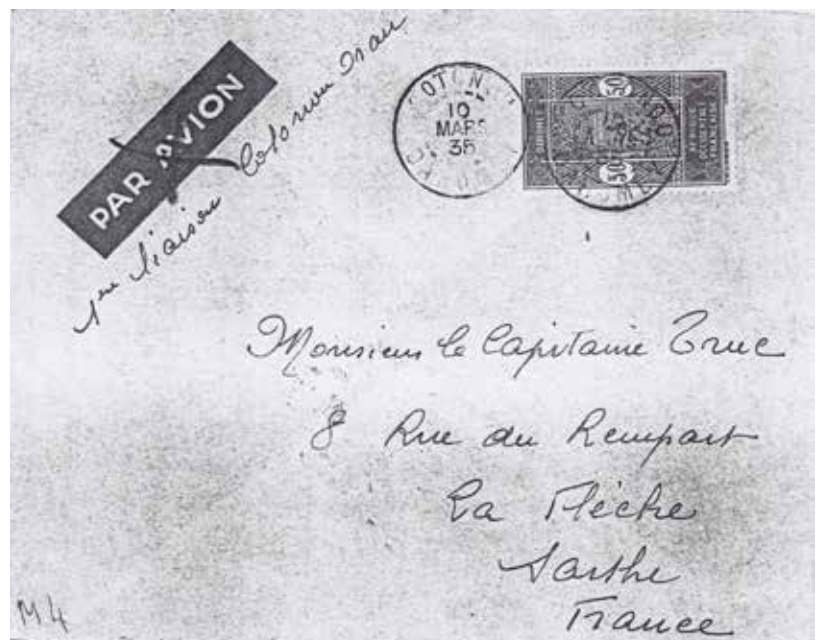 PAR AVION
1ère liaison Cotonou Oran
COTONOU
10
MARS
35
50
50
Monsieur le Capitaine Truc
8 Rue du Rempart
La Flèche
Sarthe
France
M4